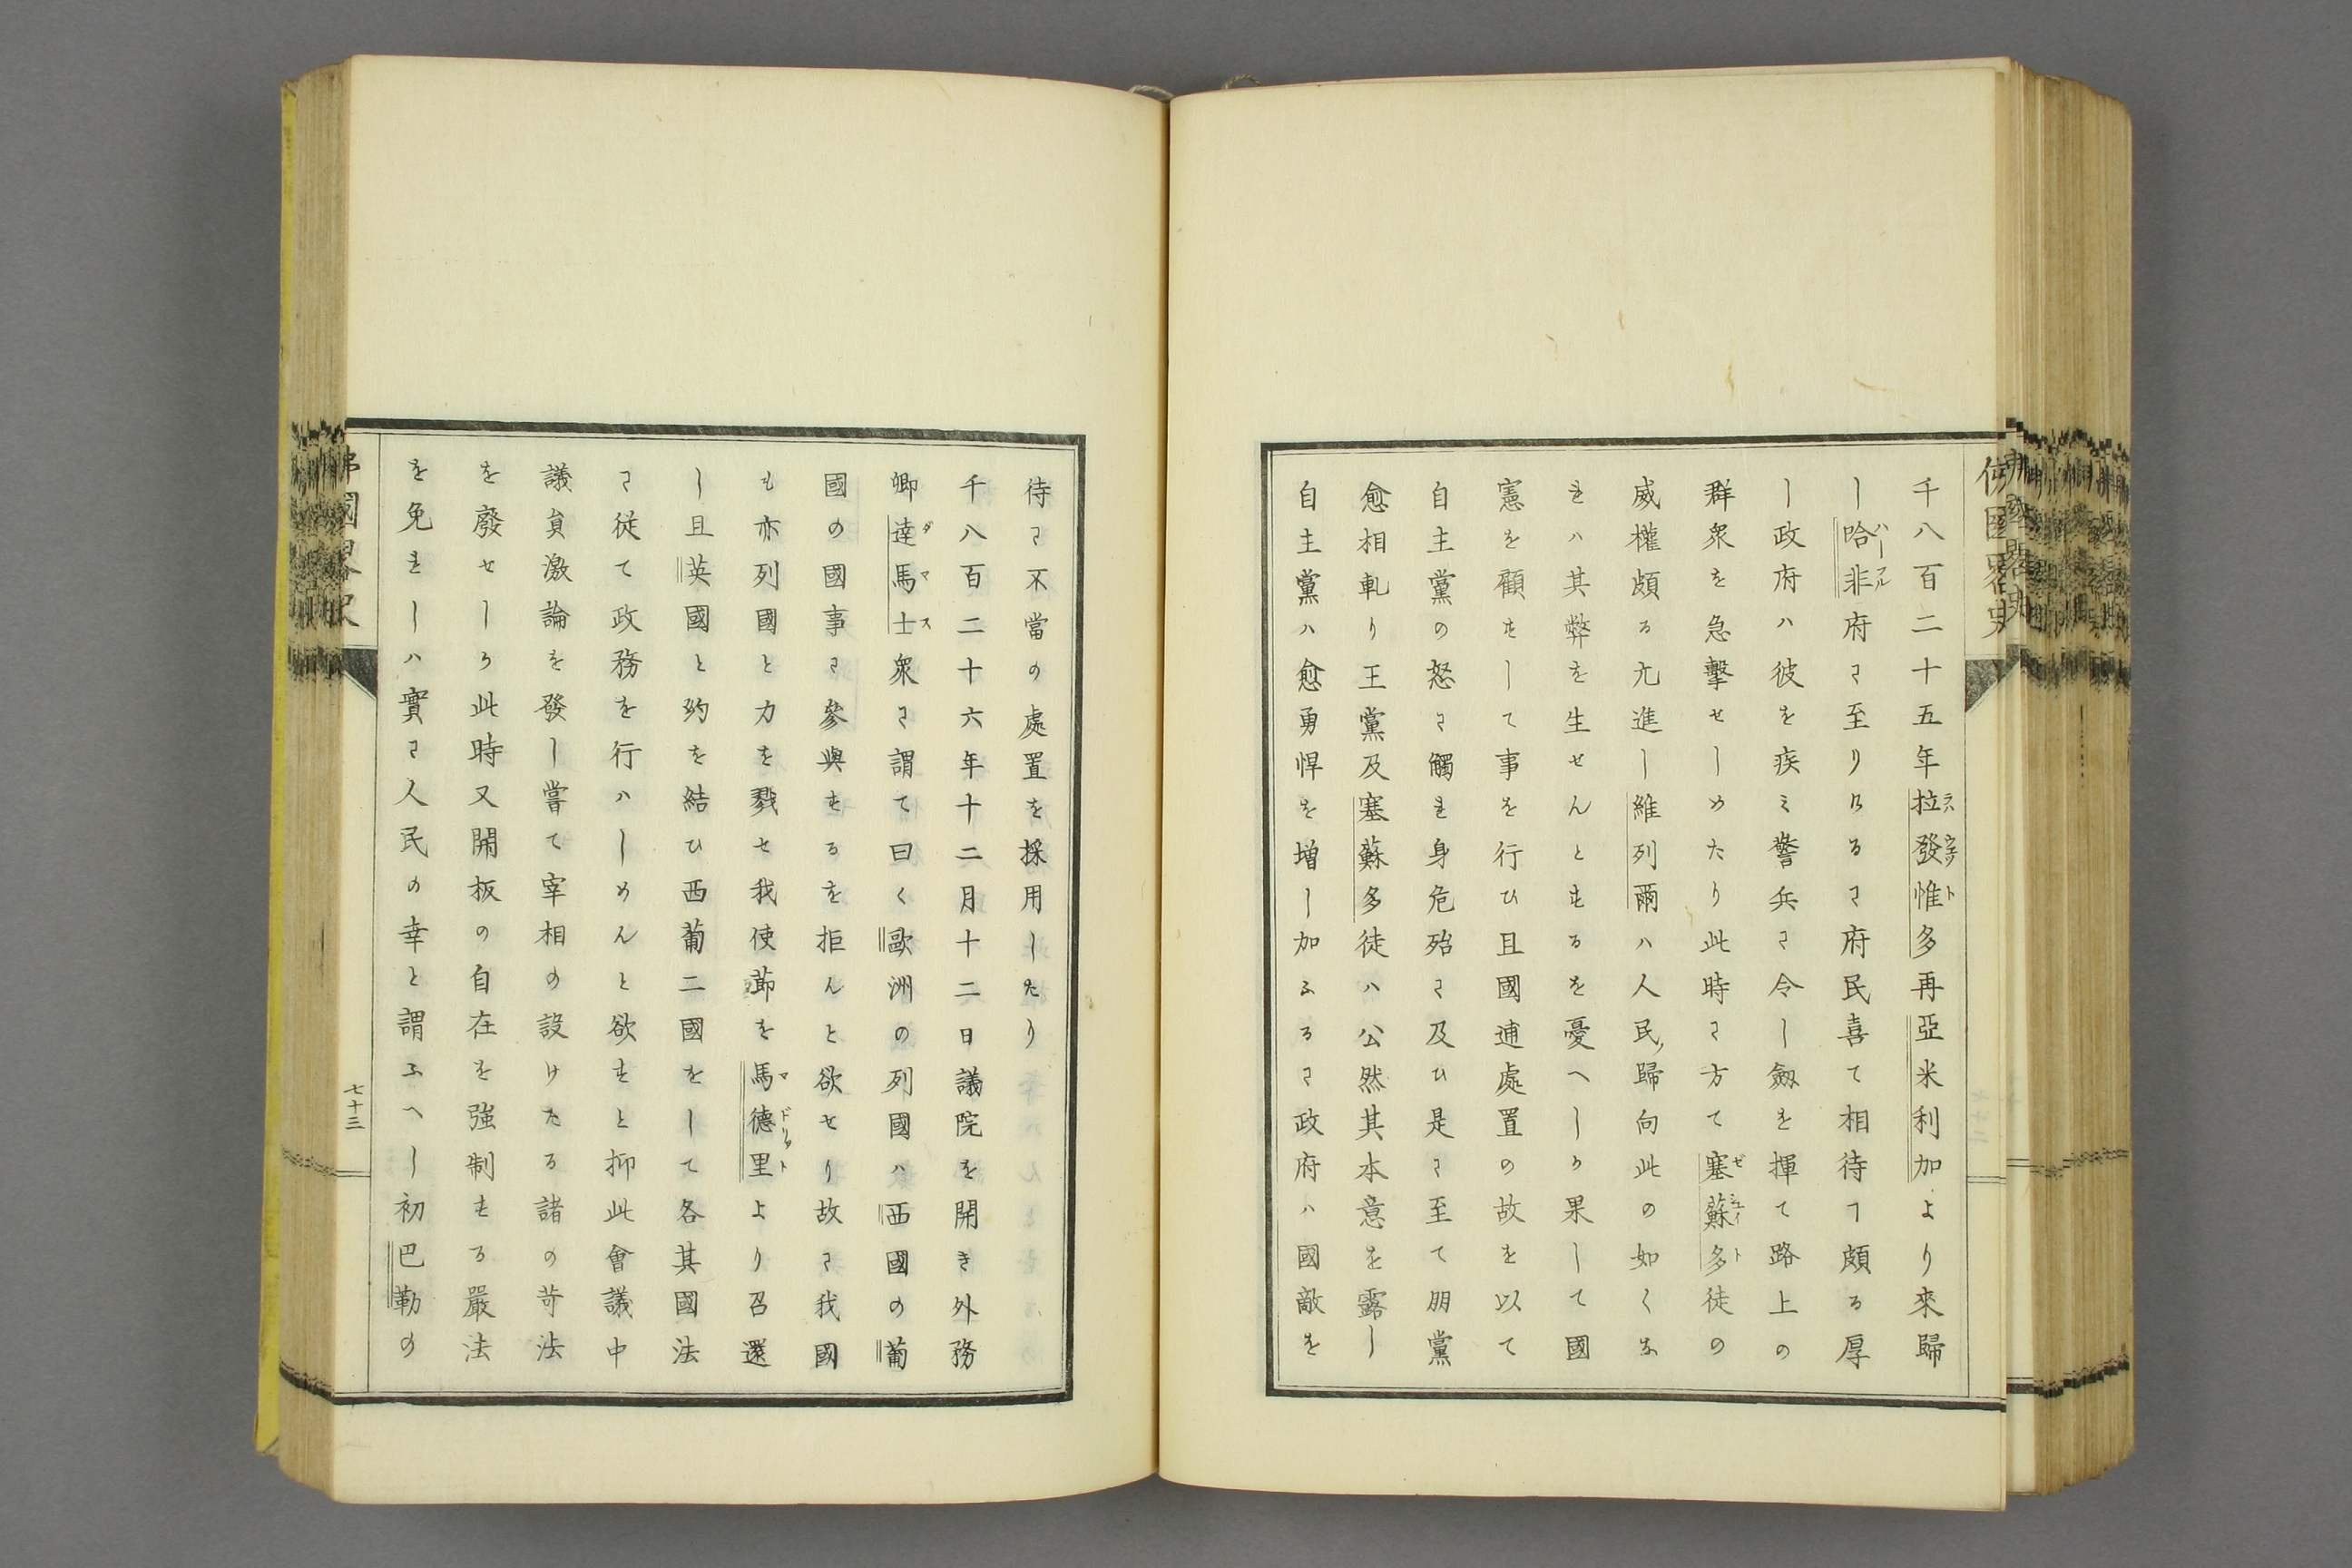 千八百二十五年拉發惟多再亞米利加より來歸
し哈非府に至りけるに府民喜て相待て頗る厚
し政府ハ彼を疾ミ警兵に令し劔を揮て路上の
群衆を急擊せしめたり此時に方て塞蘇多徒の
威權頗る亢進し維列爾ハ人民ノ歸向此の如くな
れハ其弊を生せんとするを憂へしか果して國
憲を顧すして事を行ひ且國逋處置の故を以て
自主黨の怒に觸れ身危殆に及ひ是に至て朋黨
愈相軋り王黨及塞蘇多徒ハ公然其本意を露し
自主黨ハ愈勇悍を增し加ふるに政府ハ國敵を
待に不當の處置を採用したり
千八百二十六年十二月十二日議院を開き外務
卿達馬士衆に謂て曰く歐洲の列國ハ西國の葡
國の國事に參與するを拒んと欲せり故に我國
も亦列國と力を戮せ我使節を馬德里より召還
し且英國と約を結ひ西葡二國をして各其國法
に從て政務を行ハしめんと欲すと抑此會議中
議員激論を發し嘗て宰相の設けたる諸の苛法
を廢せしめ此時又開板の自在を強制する嚴法
を免れしハ實に人民の幸と謂ふへし初巴勒の
佛國畧史
七十三